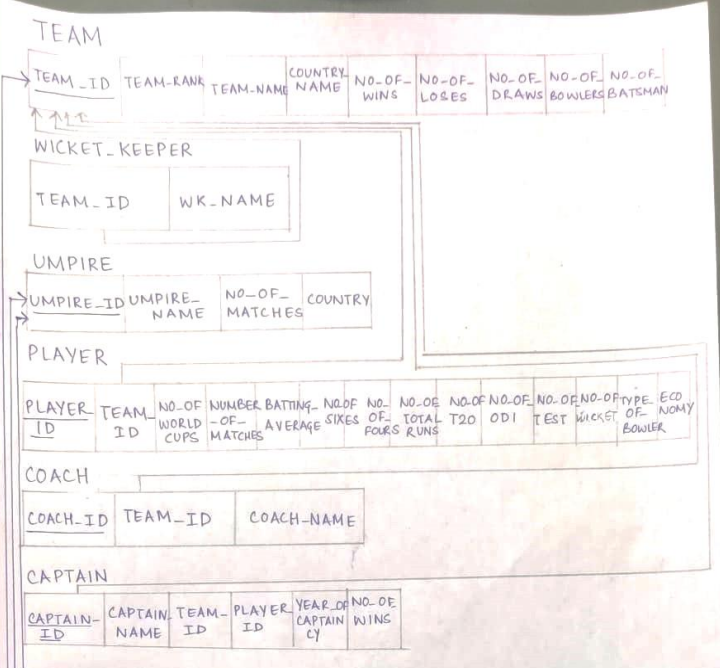 TEAM
TEAM_ID TEAM-RANK TEAM-NAME COUNTRY_NAME NO_OF_WINS NO_OF_LOSES NO_OF_DRAWS NO_OF_BOWLERS NO_OF_BATSMAN
WICKET_KEEPER
TEAM_ID WK_NAME
UMPIRE
UMPIRE_ID UMPIRE_NAME NO_OF_MATCHES COUNTRY
PLAYER
PLAYER_ID TEAM_ID NO_OF WORLD CUPS NUMBER-OF-MATCHES BATTING_AVERAGE NO.OF SIXES NO_OF_FOURS NO_OF TOTAL RUNS NO.OF T20 NO_OF_ODI NO_OF TEST NO-OF WICKET TYPE_OF_BOWLER ECONOMY
COACH
COACH_ID TEAM_ID COACH_NAME
CAPTAIN
CAPTAIN-ID CAPTAIN_NAME TEAM-ID PLAYER_ID YEAR_OF CAPTAINCY NO_OF WINS